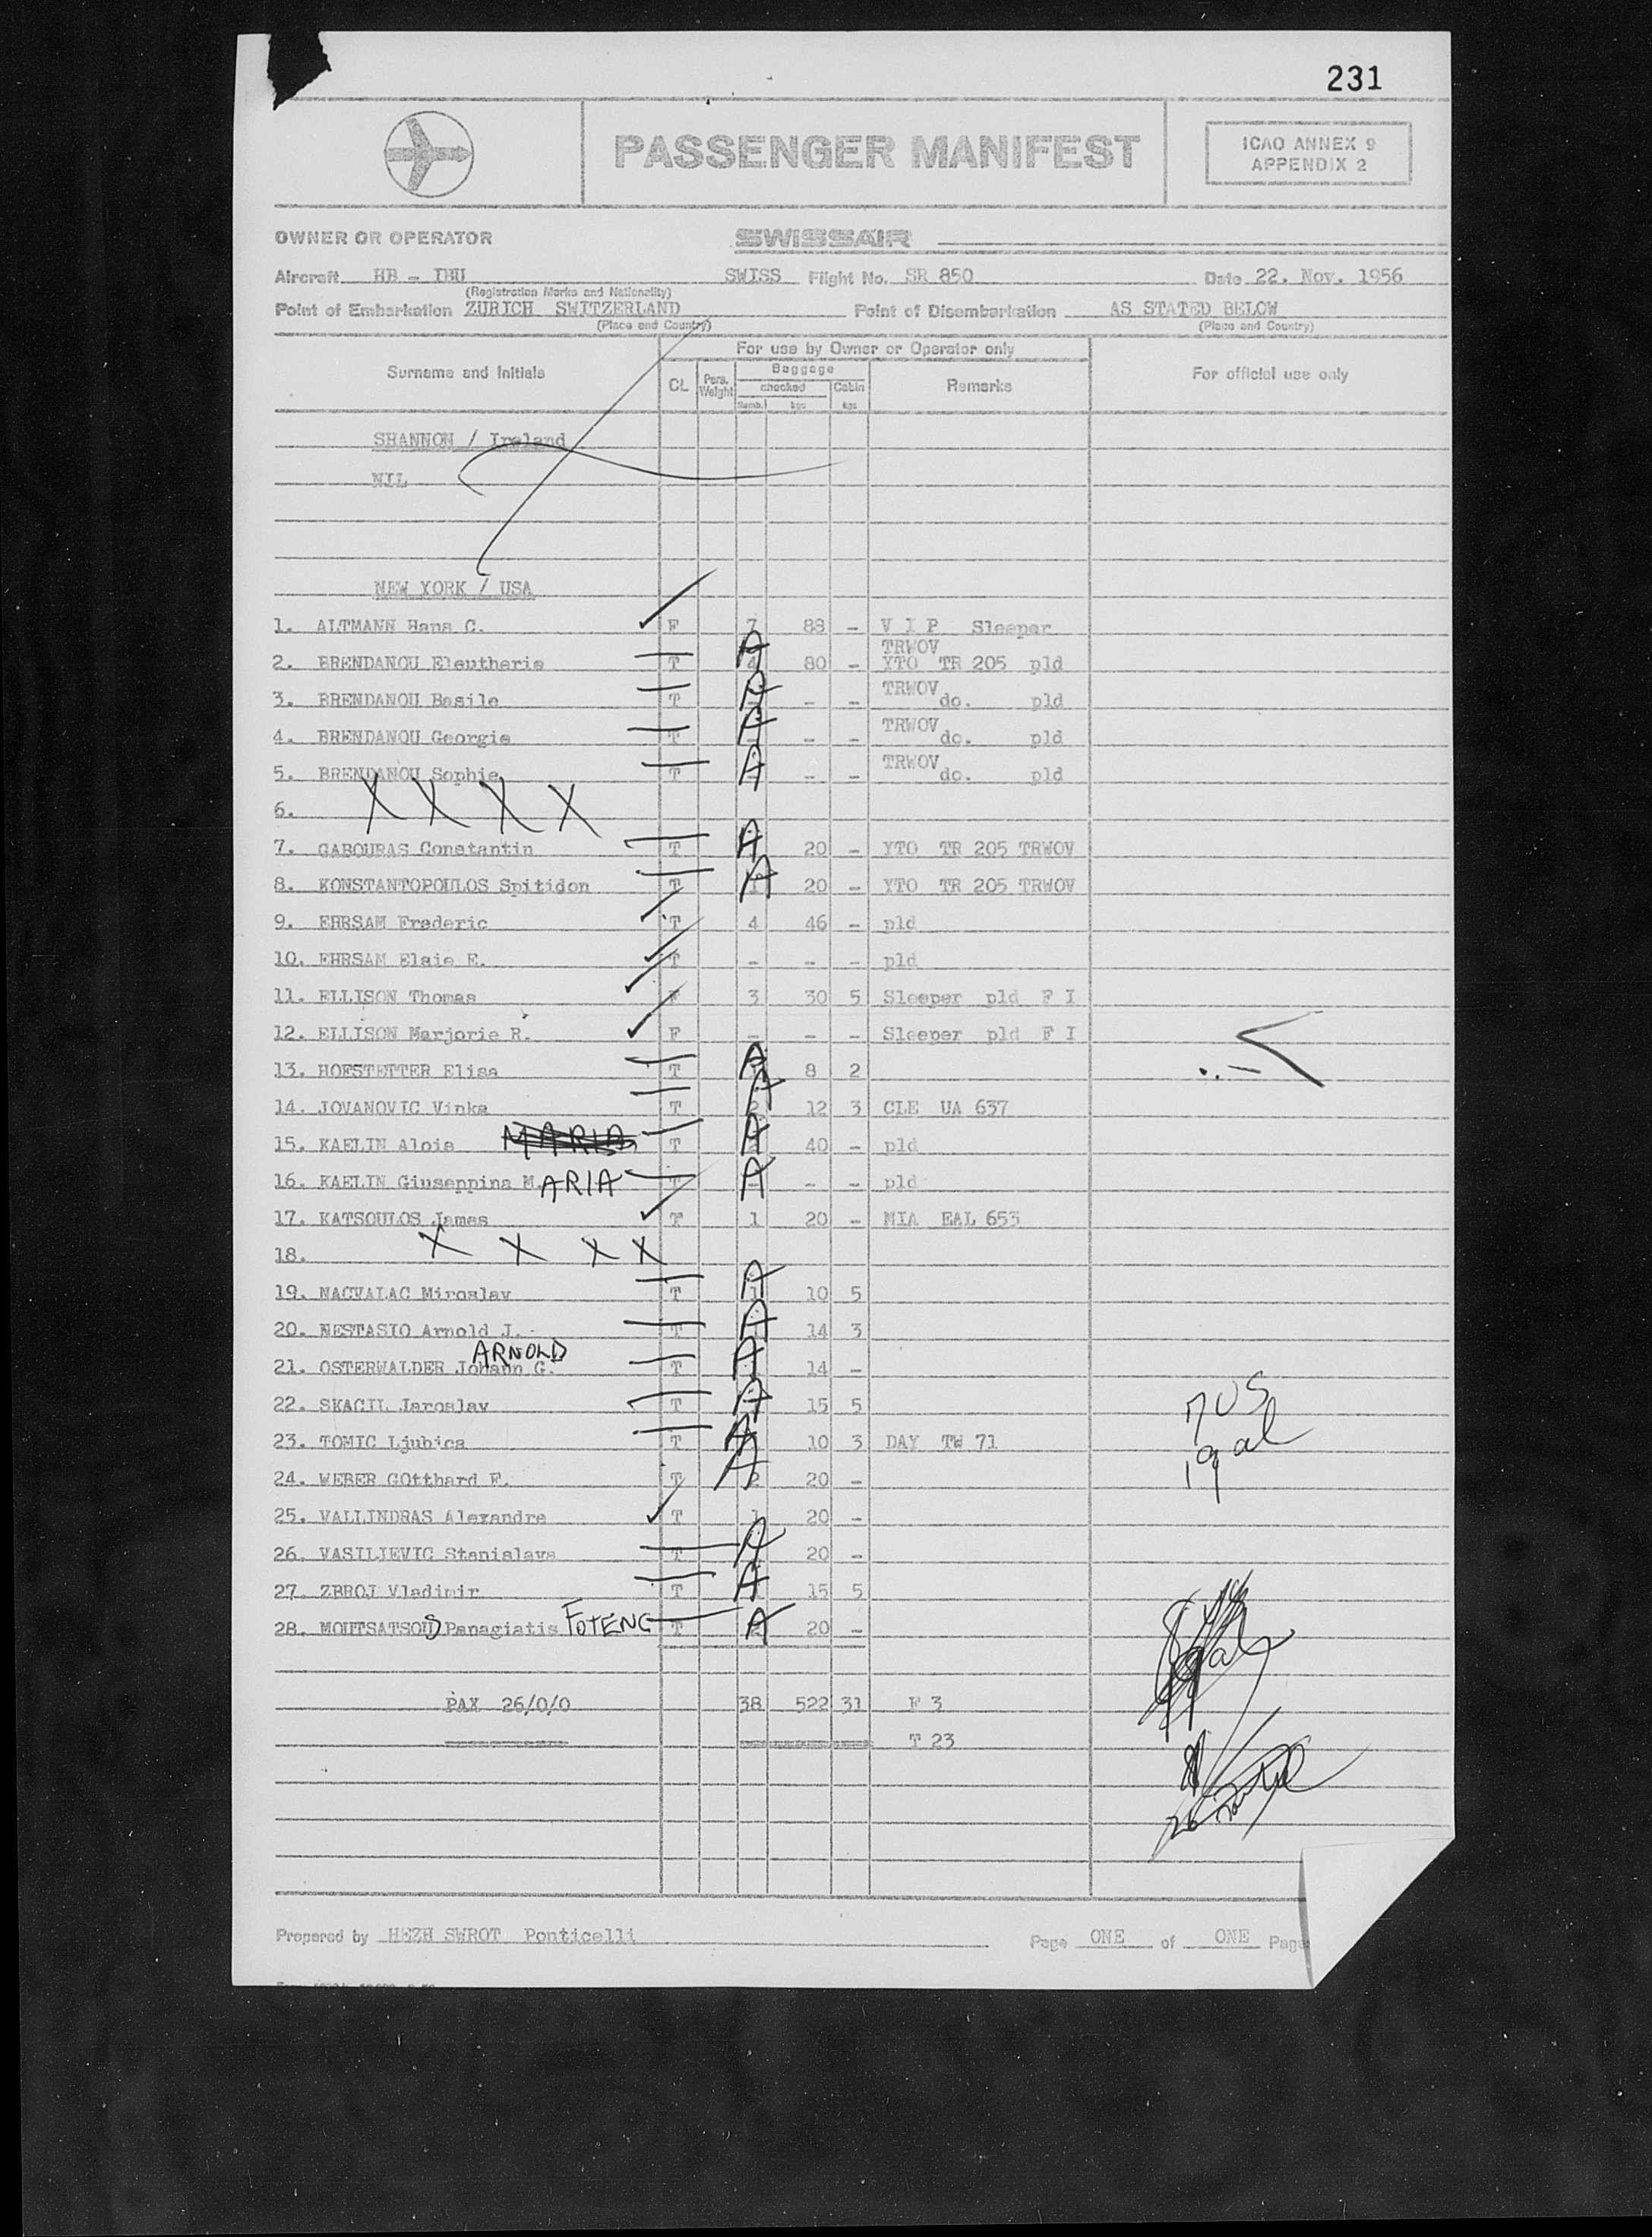 231
PASSENGER MANIFEST
ICAO ANNEX 9
APPENDIX 2
OWNER OR OPERATOR SWISSAIR
Aircraft HB - IBU SWISS Flight No. SR 850 Date 22. Nov. 1956
(Registration Marks and Nationality)
Point of Embarkation ZURICH SWITZERLAND Point of Disembarkation AS STATED BELOW
(Place and Country) (Place and Country)
For use by Owner or Operator only
Surname and Initials CL Pers. Weight Baggage checked Numb. kgs Cabin kgs Remarks For official use only
SHANNON / Ireland
NIL
NEW YORK / USA
1. ALTMANN Hans C. F 7 88 - V I P Sleeper
TRWOV
2. BRENDANOU Eleutherie T A 4 80 - YTO TR 205 pld
TRWOV
3. BRENDANOU Basile T A - - do. pld
TRWOV
4. BRENDANOU Georgia T A - - do. pld
TRWOV
5. BRENDANOU Sophie T A - - do. pld
6. X X X X
7. GABOURAS Constantin T A 20 - YTO TR 205 TRWOV
8. KONSTANTOPOULOS Spitidon T A 20 - YTO TR 205 TRWOV
9. EHRSAM Frederic T 4 46 - pld
10. EHRSAM Elsie E. T - - - pld
11. ELLISON Thomas F 3 30 5 Sleeper pld F I
12. ELLISON Marjorie R. F - - - Sleeper pld F I
13. HOFSTETTER Elisa T A 8 2
14. JOVANOVIC Vinka T A 2 12 3 CLE UA 637
15. KAELIN Alois MARIA T A 40 - pld
16. KAELIN Giuseppina M.ARIA T A - - pld
17. KATSOULOS James T 1 20 - MIA EAL 653
18. X X X X
19. NACVALAC Miroslav T A 1 10 5
20. NESTASIO Arnold J. T A 14 3
ARNOLD
21. OSTERWALDER Johann G. T A 14 -
22. SKACIL Jaroslav T A 15 5
23. TOMIC Ljubica T A 10 3 DAY TW 71
24. WEBER GOtthard F. T A 2 20 -
25. VALLINDRAS Alexandre T 1 20 -
26. VASILJEVIC Stanislava T A 20 -
27. ZBROJ Vladimir T A 15 5
28. MOUTSATSOUS Panagiatis FOTENG T A 20 -
7 US
19 al
PAX 26/0/0 38 522 31 F 3
T 23
Prepared by HEZH SWROT Ponticelli Page ONE of ONE Page